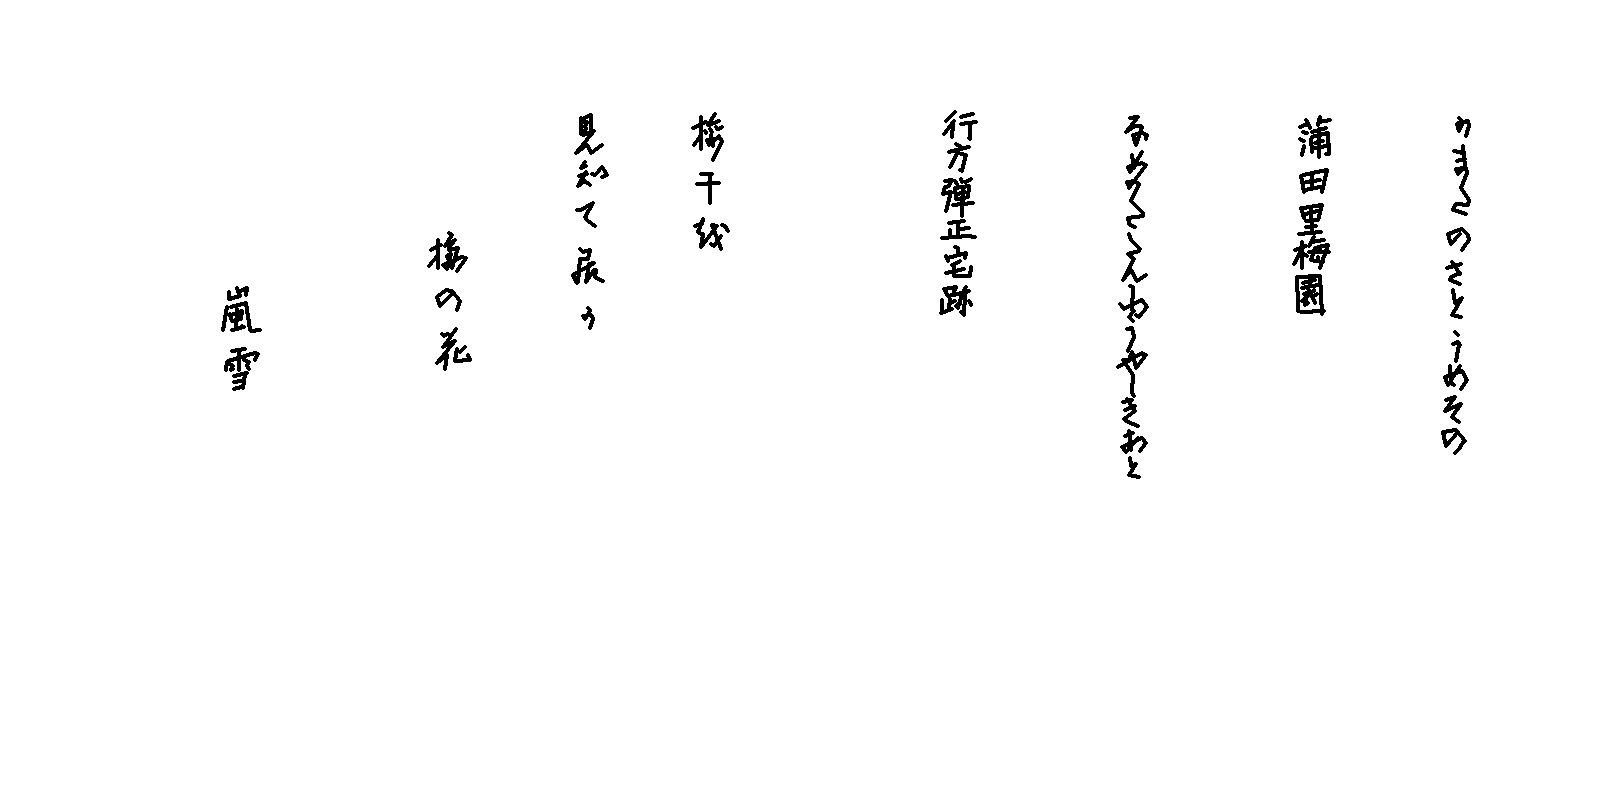 かまたのさとうめその
蒲田里梅園
なめかたたんせうやしきあと
行方弾正宅跡
梅干を
見知て居るか
梅の花
嵐雪